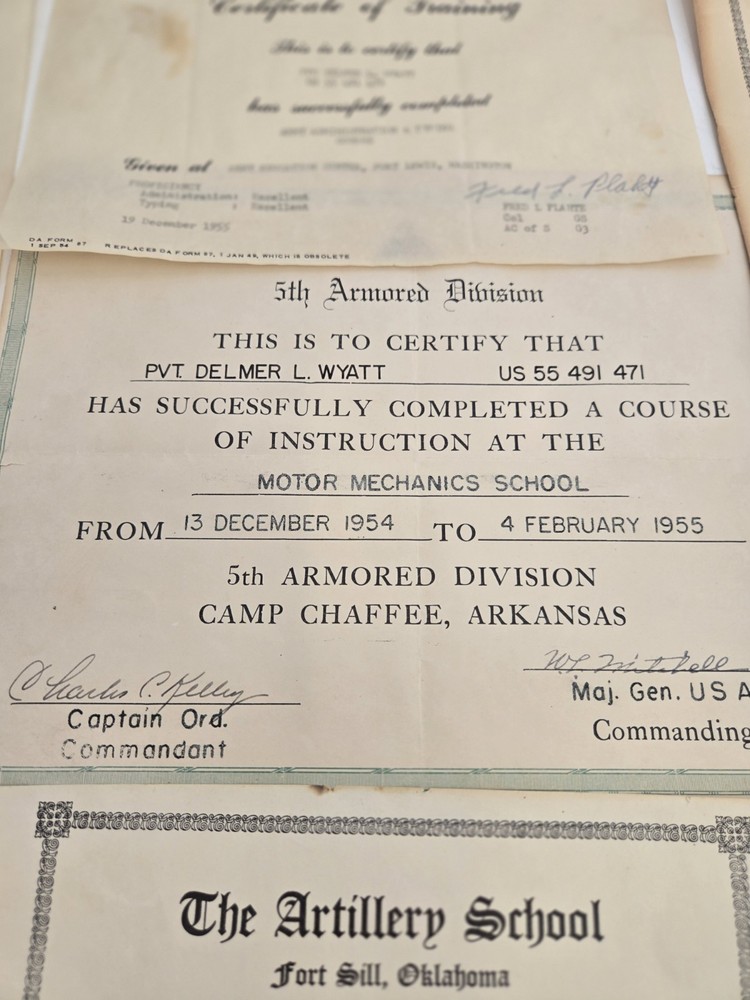 Certificate of Training
This is to certify that
has successfully completed
Given at ARMY EDUCATION CENTER, FORT LEWIS, WASHINGTON
PROFICIENCY
Administration: Excellent
Typing : Excellent
19 December 1955
Fred L. Plante
FRED L PLANTE
Col GS
AC of S G3
DA FORM 87
1 SEP 54
REPLACES DA FORM 87, 1 JAN 49, WHICH IS OBSOLETE
5th Armored Division
THIS IS TO CERTIFY THAT
PVT. DELMER L. WYATT US 55 491 471
HAS SUCCESSFULLY COMPLETED A COURSE
OF INSTRUCTION AT THE
MOTOR MECHANICS SCHOOL
FROM 13 DECEMBER 1954 TO 4 FEBRUARY 1955
5th ARMORED DIVISION
CAMP CHAFFEE, ARKANSAS
Charles C. Kelley
Captain Ord.
Commandant
Maj. Gen. US A
Commanding
The Artillery School
Fort Sill, Oklahoma